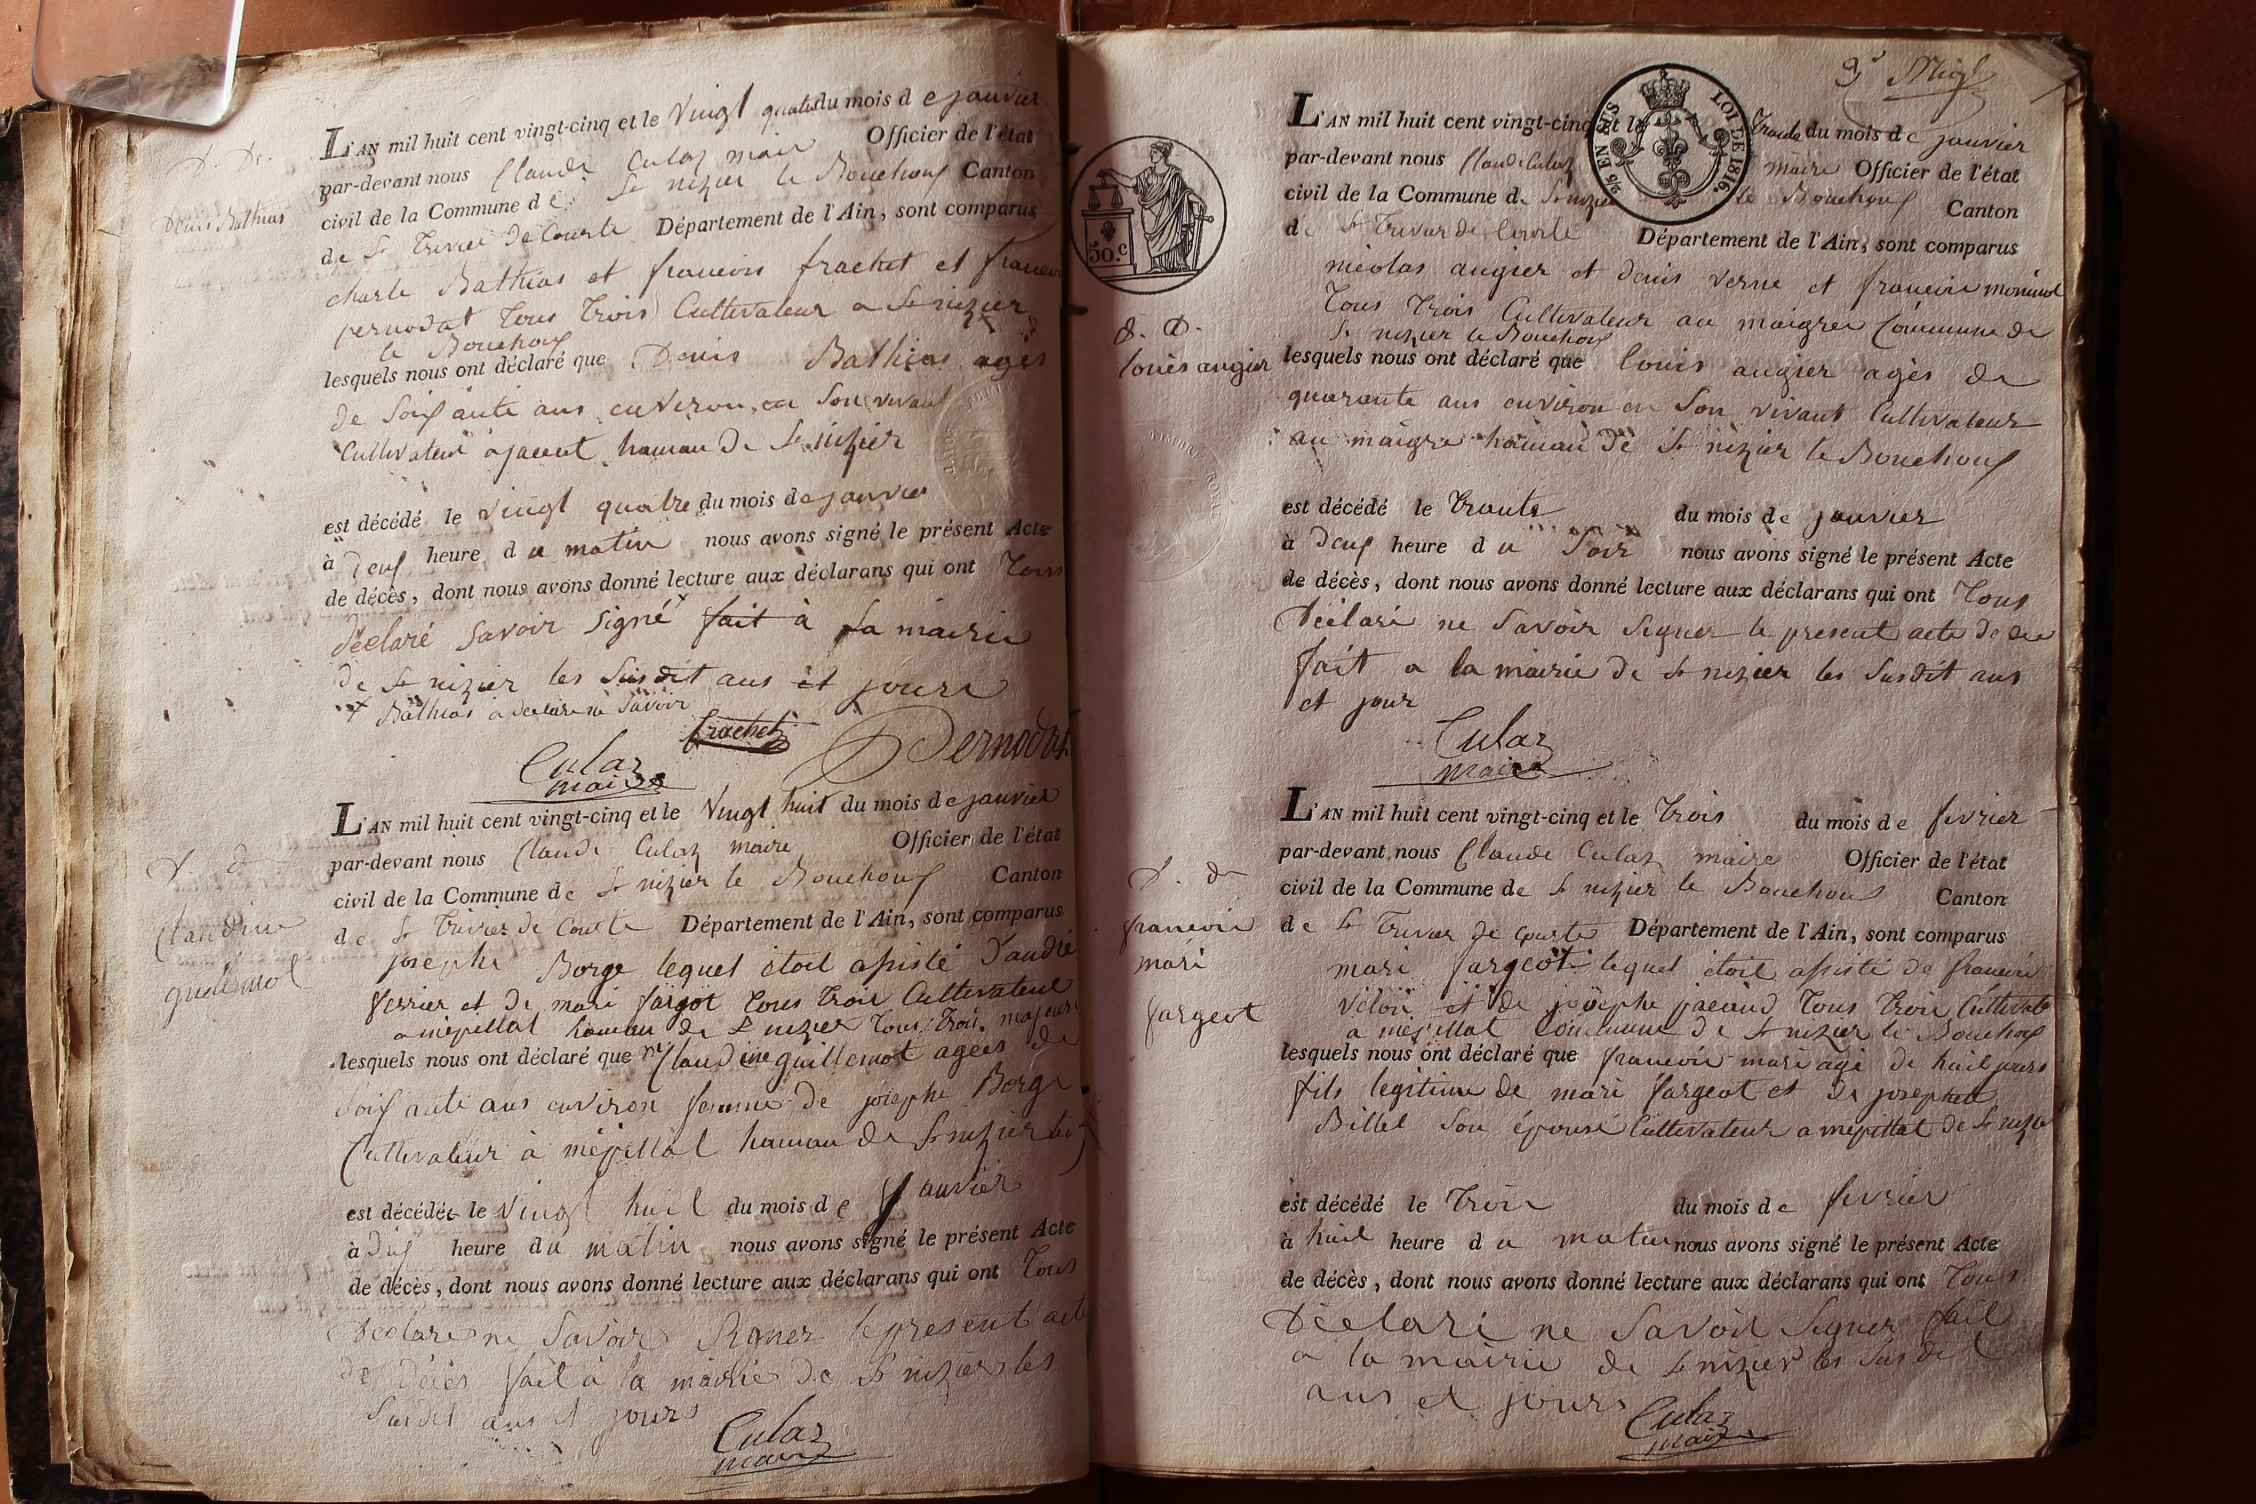 D. De.
Denis Bathias
L'AN mil huit cent vingt-cinq et le vingt quatre du mois de janvier
par-devant nous Claude Culaz maire Officier de l'état
civil de la Commune de St nizier le Bouchoux Canton
de St Trivier De Courte Département de l'Ain, sont comparus
charle Bathias et francois frachet et francois
pernodat Tous Trois Cultivateur a St nizier
le Bouchoux
lesquels nous ont déclaré que Denis Bathias agés
de Soixante ans environ en Son vivant
Cultivateur a jacent hamau De St nizier
est décédé le vingt quatre du mois de janvier
à Deux heure du matin nous avons signé le présent Acte
de décès, dont nous avons donné lecture aux déclarans qui ont Tous
déclaré savoir signé x fait à La mairie
de St nizier les Susdit ans et jours
x Bathias a declare ne Savoir
frachet Pernodat
Culaz
maire
D. d
Claudine
guillemot
L'AN mil huit cent vingt-cinq et le Vingt huit du mois de janvier
par-devant nous Claude Culaz maire Officier de l'état
civil de la Commune de St nizier le Bouchoux Canton
de St Trivier de Courte Département de l'Ain, sont comparus
josephe Borge lequel étoit assisté D'andié
ferrier et De mari fargot Tous Trois Cultivateur
a mépillat hamau de St nizier Tous Trois majeurs
lesquels nous ont déclaré que ne Claudine guillemot agées de
Soixante ans environ femme de josephe Borge
Cultivateur à mépillat hamau de St nizier
est décédée le vingt huit du mois de janvier
à Dix heure du matin nous avons signé le présent Acte
de décès, dont nous avons donné lecture aux déclarans qui ont Tous
Déclare ne Savoir Signer le present acte
de décès fait à la mairie De St nizier les
Susdit ans et jours
Culaz
maire
L'AN mil huit cent vingt-cinq et le Trante du mois de janvier
2/5 EN SUS LOI DE 1816.
par-devant nous Claude Culaz maire Officier de l'état
civil de la Commune de St nizier le Bouchoux Canton
de St Trivier de Courte Département de l'Ain, sont comparus
50.c
nicolas augier et denis verne et francois
Tous Trois Cultivateur au maigre Commune de
St nizier le Bouchoux
D. D.
Louis augier
lesquels nous ont déclaré que Louis augier agés de
quarante ans environ en Son vivant Cultivateur
au maigre hamau de St nizier le Bouchoux
est décédé le Trante du mois de janvier
à deux heure du Soir nous avons signé le présent Acte
de décès, dont nous avons donné lecture aux déclarans qui ont Tous
Déclaré ne Savoir Signer le present acte de
fait a la mairie de St nizier les Susdit ans
et jour
Culaz
maire
D. de
francois
mari
fargeot
L'AN mil huit cent vingt-cinq et le Trois du mois de fevrier
par-devant nous Claude Culaz maire Officier de l'état
civil de la Commune de St nizier le Bouchoux Canton
de St Trivier de Courte Département de l'Ain, sont comparus
mari fargeot lequel étoit assisté de francois
velon et de josephe jacand Tous Trois Cultivate
a mépillat Commune de St nizier le Bouchoux
lesquels nous ont déclaré que francois mari agé de huit jours
fils legitime de mari fargeot et de josephte
Billet Son épouse Cultivateur a mépillat de St nizier
est décédé le Trois du mois de fevrier
à huit heure du matin nous avons signé le présent Acte
de décès, dont nous avons donné lecture aux déclarans qui ont Tous
Déclaré ne Savoir Signer fait
a la mairie de St nizier les Susdit
ans et jours
Culaz
maire